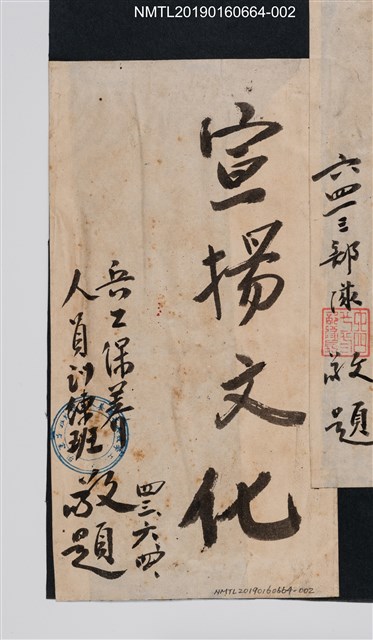 NMTL20190160664-002
六四一三部隊
敬題
宣揚文化
兵工保養
人員訓練班
敬題
四三、六、四、
NMTL20190160664-002